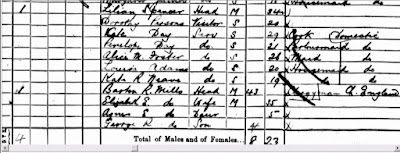 1 Lilian Spencer Head M 34
Dorothy Visitor S 20
Kate Day Serv S 29 Cook Domestic
Penelope Day do S 21 Parlourmaid do
Alice M. Foster do S 28 Maid do
Louisa Adams do S 20 Housemaid do
Kate R. Means do S 19 do
1 Barton R. Mills Head M 43 Clergyman C. England
Elizabeth E. do Wife M 35
Agnes E. do Daur 5
George R. do Son 4
4 Total of Males and of Females... 8 23